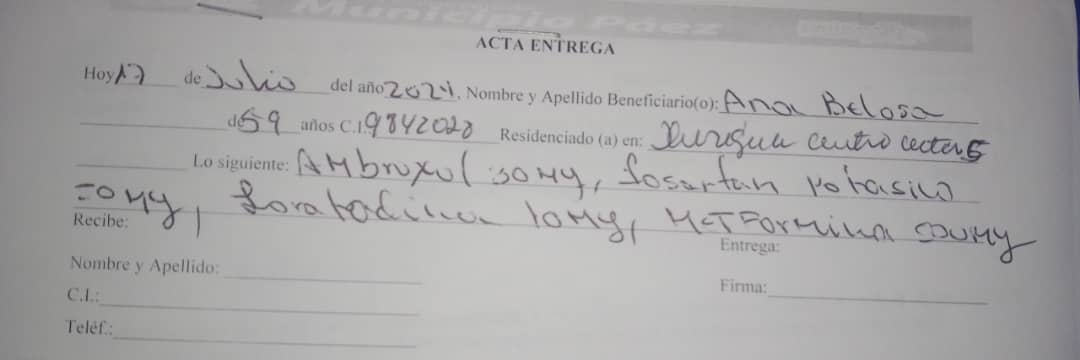 Municipio Páez
ACTA ENTREGA
Hoy 17 de Julio del año 2024. Nombre y Apellido Beneficiario(o): Ana Belosa
de 59 años C.I. 9842028 Residenciado (a) en: centro cector 5
Lo siguiente: AMbroxol 30My, Losartan Potasico
50My, Loratadina 10My, MeTFormina 500My
Recibe: Entrega:
Nombre y Apellido:
Firma:
C.I.:
Teléf.: